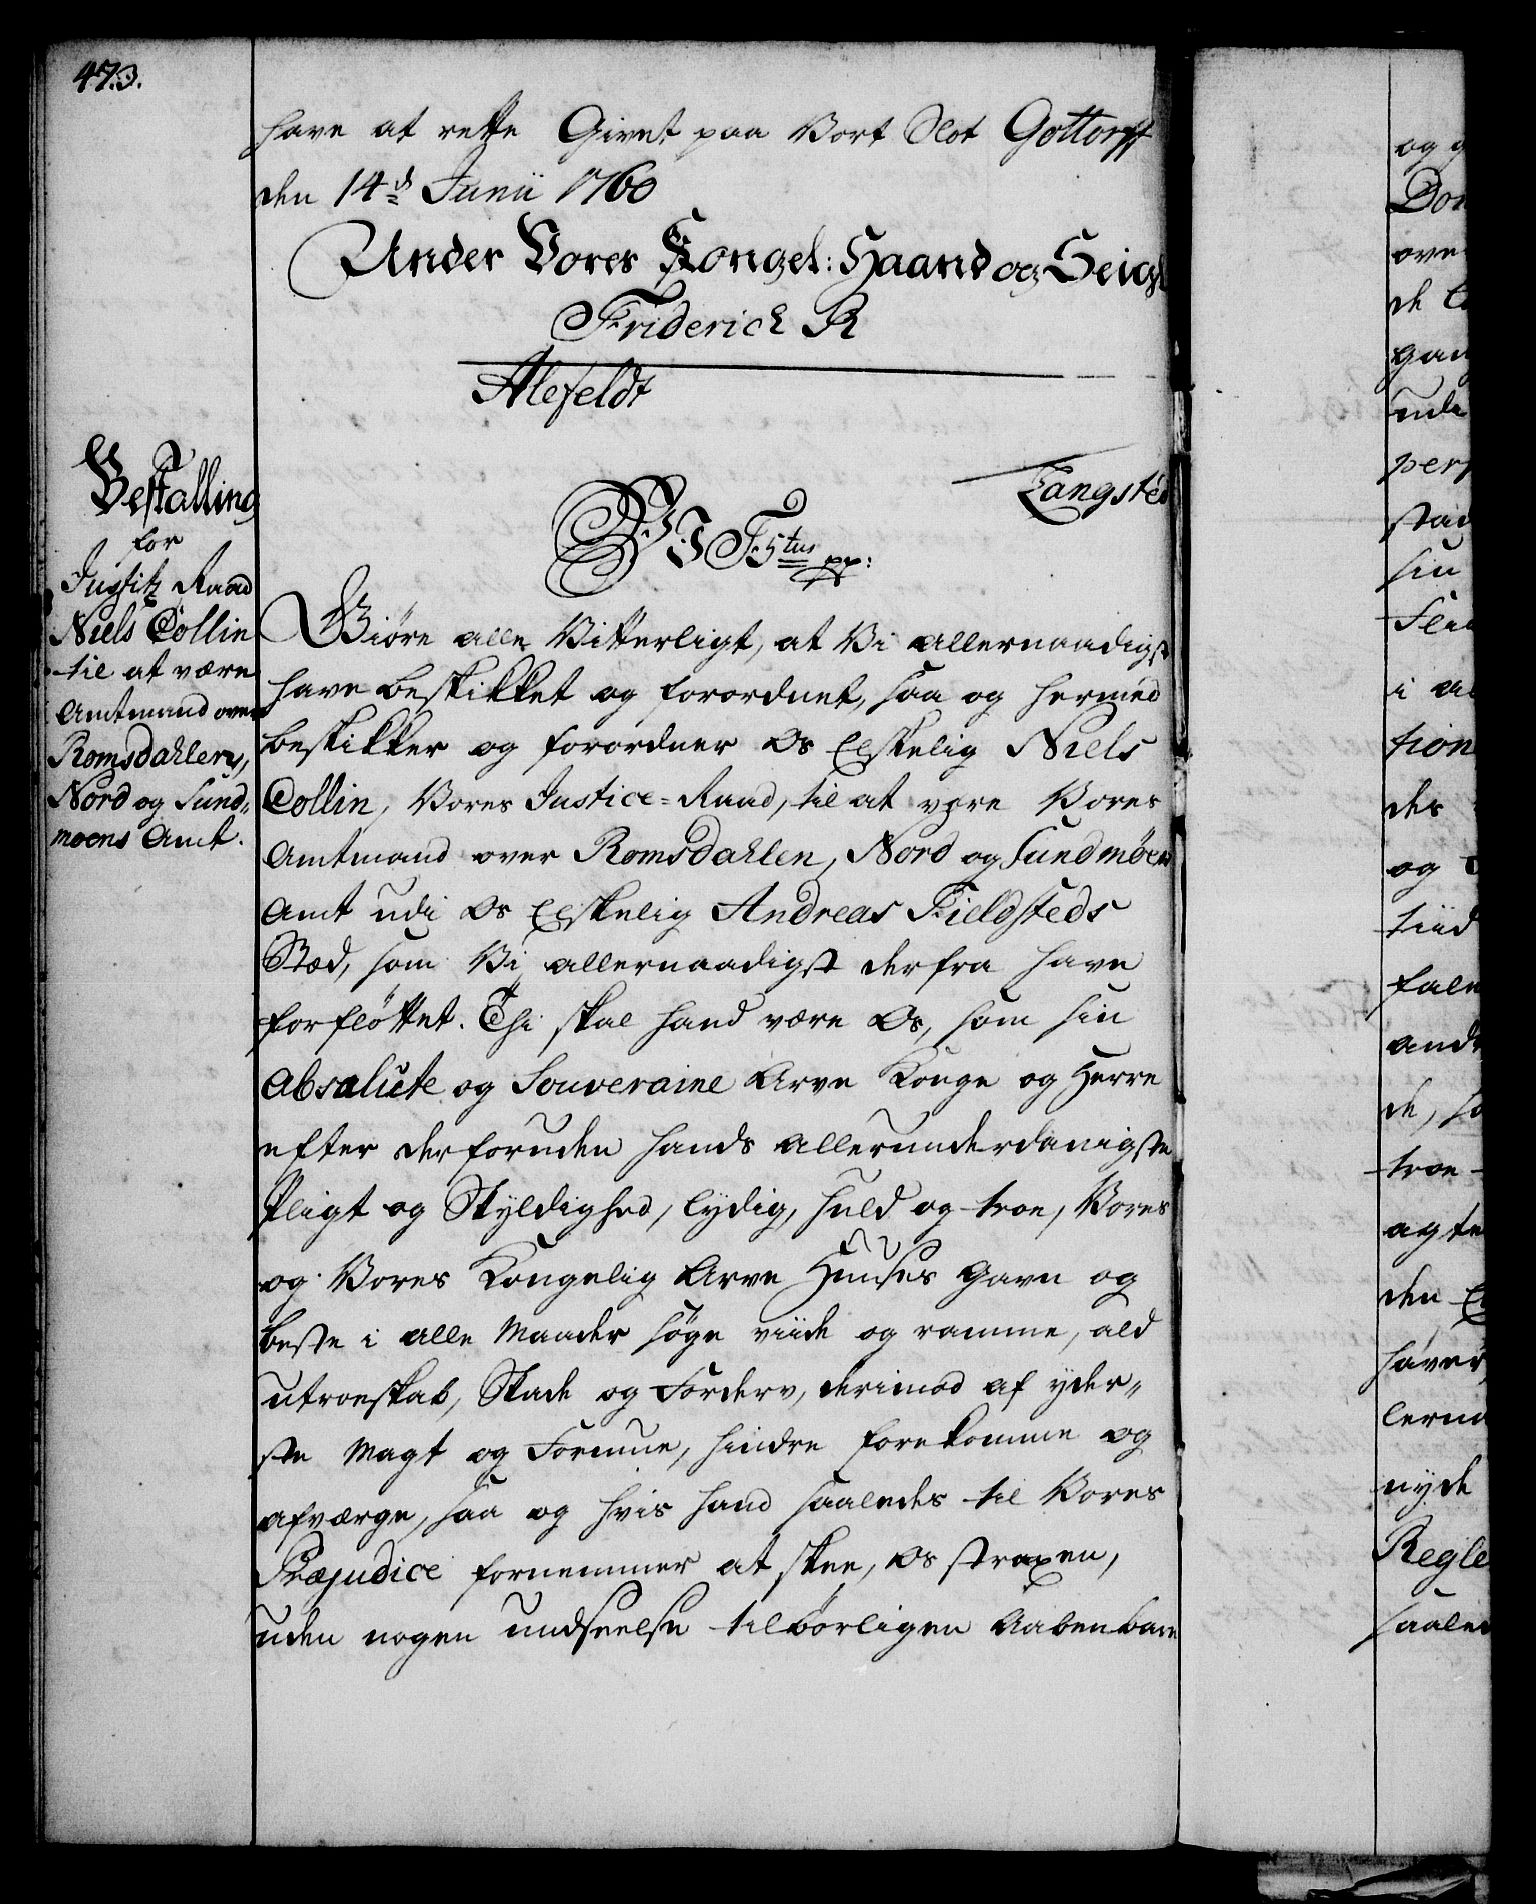 473.
have at rette Givet paa Vort Slot Gottorff
den 14d Junii 1760
Under Vores Kongel: Haand og Seigl
Friderich R
Alefeldt
Langsted
Bestalling
for
Justitz Raad
Niels Collin
til at være
Amtmand over
Romsdahlen,
Nord og Sund-
moens Amt.
W: I F: 5tus pp:
Giöre alle Vitterligt, at Vi allernaadigst
have beskikket og forordnet, saa og hermed
beskikker og forordner Os Elskelig Niels
Collin, Vores Justice-Raad, til at være Vores
Amtmand over Romsdahlen, Nord og Sundmöens
Amt udi Os Elskelig Andreas Fieldsteds
Stæd, som Vi allernaadigst derfra have
forfløttet. Thi skal hand være Os, som sin
Absolute og Souveraine Arve Konge og Herre
efter derforuden hands allerunderdanigste
Pligt og Skyldighed, lydig, huld og troe, Vores
og Vores Kongelig Arve Huuses Gavn og
beste i alle Maader søge viide og ramme, ald
utroeskab, Skade og Forderv, derimod af yder-
ste Magt og Formue, hindre forekomme og
afværge, saa og hvis hand saaledes til Vores
Præjudice fornemmer at skee, Os straxen,
uden nogen undseelse tilbörligen Aabenbare
og
ove
de
udi
stad
sin
i al
tion
des
og
tiid
troe
agte
den
haver
nyde
Regle
saaled